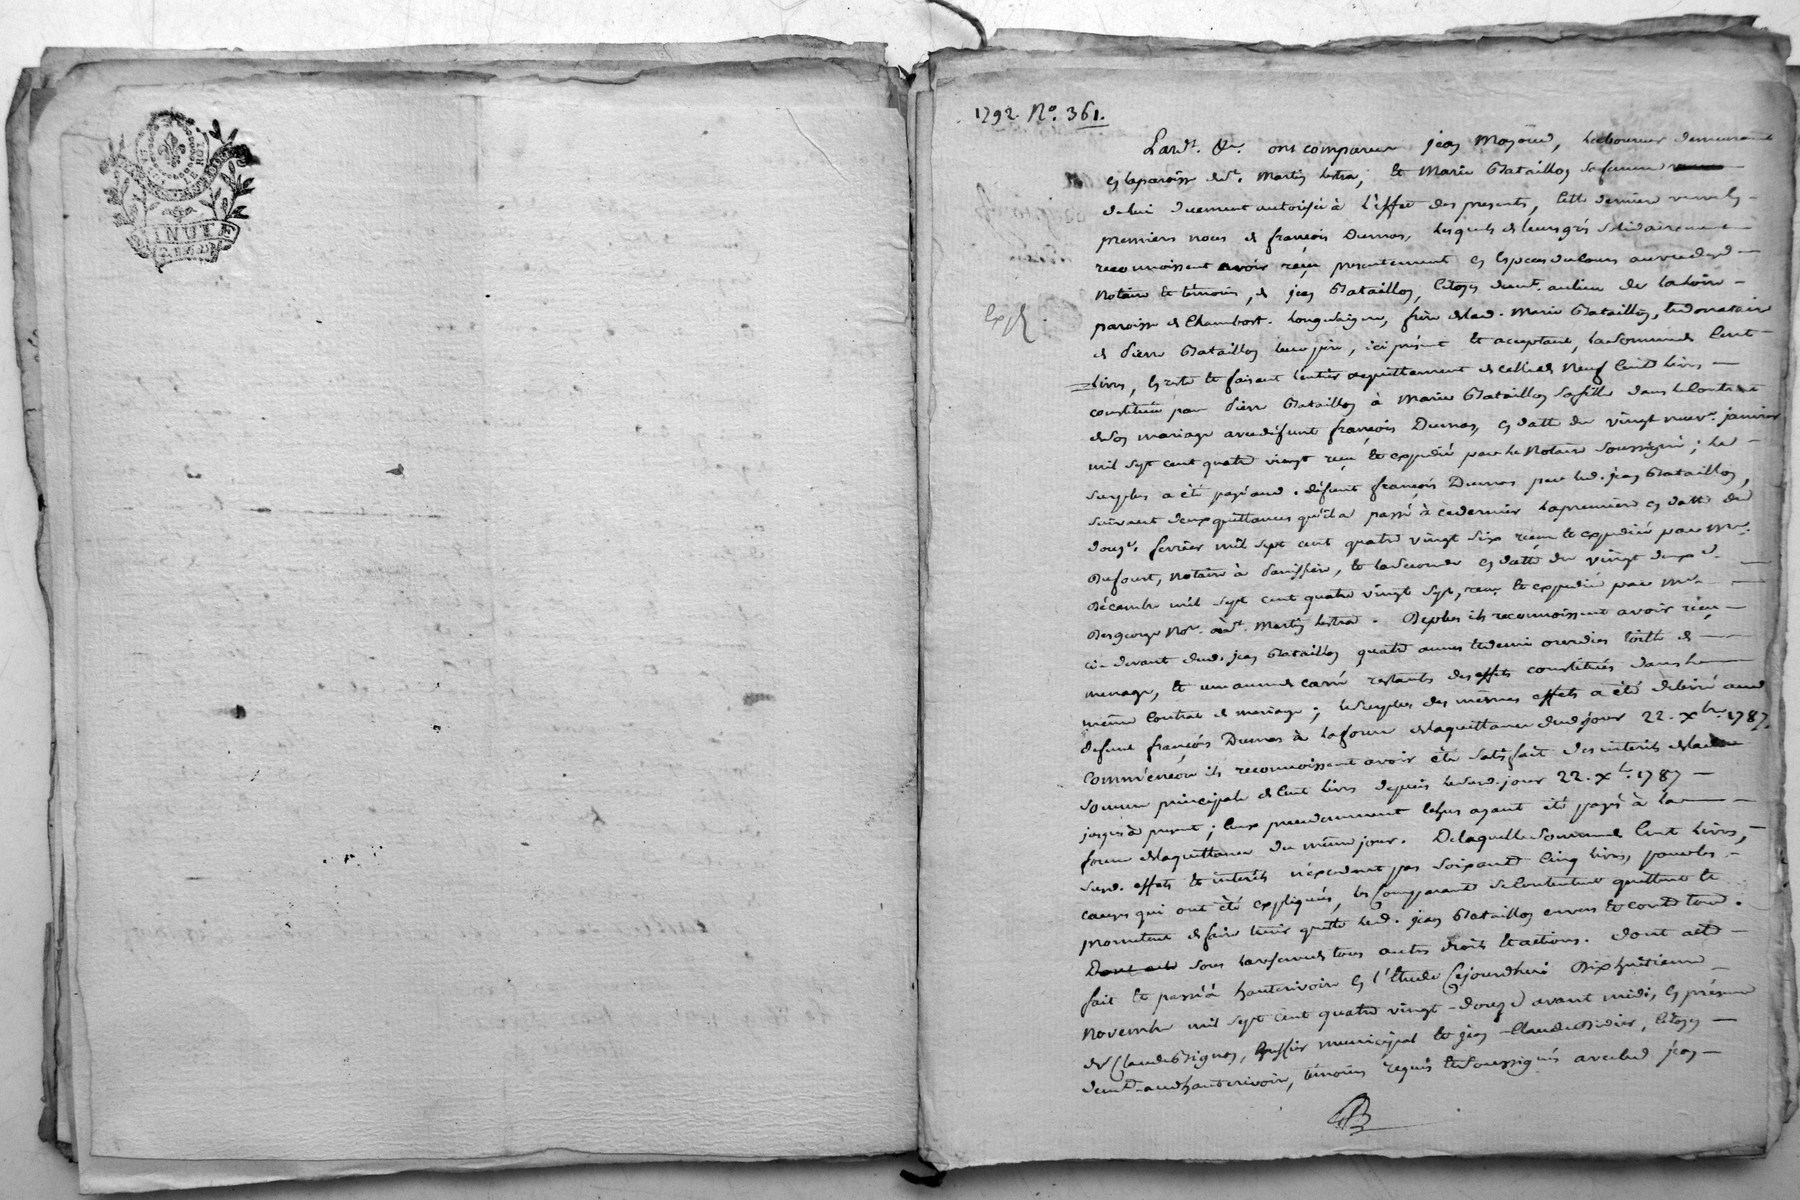 MINUTE
1792. No. 361.
Pardt. &c. ont comparu jean Mayoud, Laboureur demeurant
en la paroisse de st. Martin Lestra, et Marie Bataillon sa femme
de lui duement autorisée à l'effet des presents, cette derniere veuve en
premiers noces de françois Dumas, lesquels de leurs grés solidairement
reconnoissent avoir reçu presentement en especes du cours au vu dud.
Notaire et témoins, de jean Bataillon, citoyen demt. au lieu de la Loire
paroisse de Chambost-Longuesaigne, frère de lad. Marie Bataillon, et donataire
Expé.
de Pierre Bataillon leur père, ici présent et acceptant, la somme de Cent
Livres, de reste et faisant l'entier acquittement de celle de Neuf Cent Livres
constituée par Pierre Bataillon à Marie Bataillon sa fille dans le Contrat
de son mariage avec défunt françois Dumas, en datte du vingt neuve. janvier
mil sept cent quatre vingt reçu et expedié par le Notaire soussigné; le
surplus a été payé aud. défunt françois Dumas par led. jean Bataillon,
suivant deux quittances qu'il a passé à ce dernier la premiere en datte du
douze. fevrier mil sept cent quatre vingt six reçue et expediée par Me.
Dufourt, notaire à Panissiere, et la seconde en datte du vingt deux d.
Décembre mil sept cent quatre vingt sept, reçue et expediée par Me.
Desgeorge Nore. à st. Martin Lestra. De plus ils reconnoissent avoir reçu
ci-devant dud. jean Bataillon quatre aunes et demi toille de
menage, et une aune de carré restants des effets constitués dans le
même Contrat de mariage; le surplus des mêmes effets a été délivré aud.
defunt françois Dumas à la forme de la quittance dud. jour 22. Xbre. 1787.
Comme encore ils reconnoissent avoir été satisfait des interets de la
somme principale de Cent Livres depuis le susd. jour 22. Xb. 1787
jusqu'à present; ceux precedemment échus ayant été payés à la
forme de la quittance du même jour. De laquelle somme de Cent Livres,
susd. effets et interêts n'excedant pas soixante Cinq Livres, pour les
causes qui ont été expliquées, les Comparants se Contentent quittent et
promettent de faire tenir quitte led. jean Bataillon envers et contre tous.
Dont acte sous la réserve de tous autres droits et actions. Dont acte
fait et passé à hauterivoire en l'Etude Cejourd'hui Dix huitieme
Novembre mil sept cent quatre vingt-douze avant midi, en présence
de Claude Bignon, Greffier municipal et jean-Claude Didier, Citoyen
demt. aud. hauterivoire, témoins requis et soussignés avec led. jean